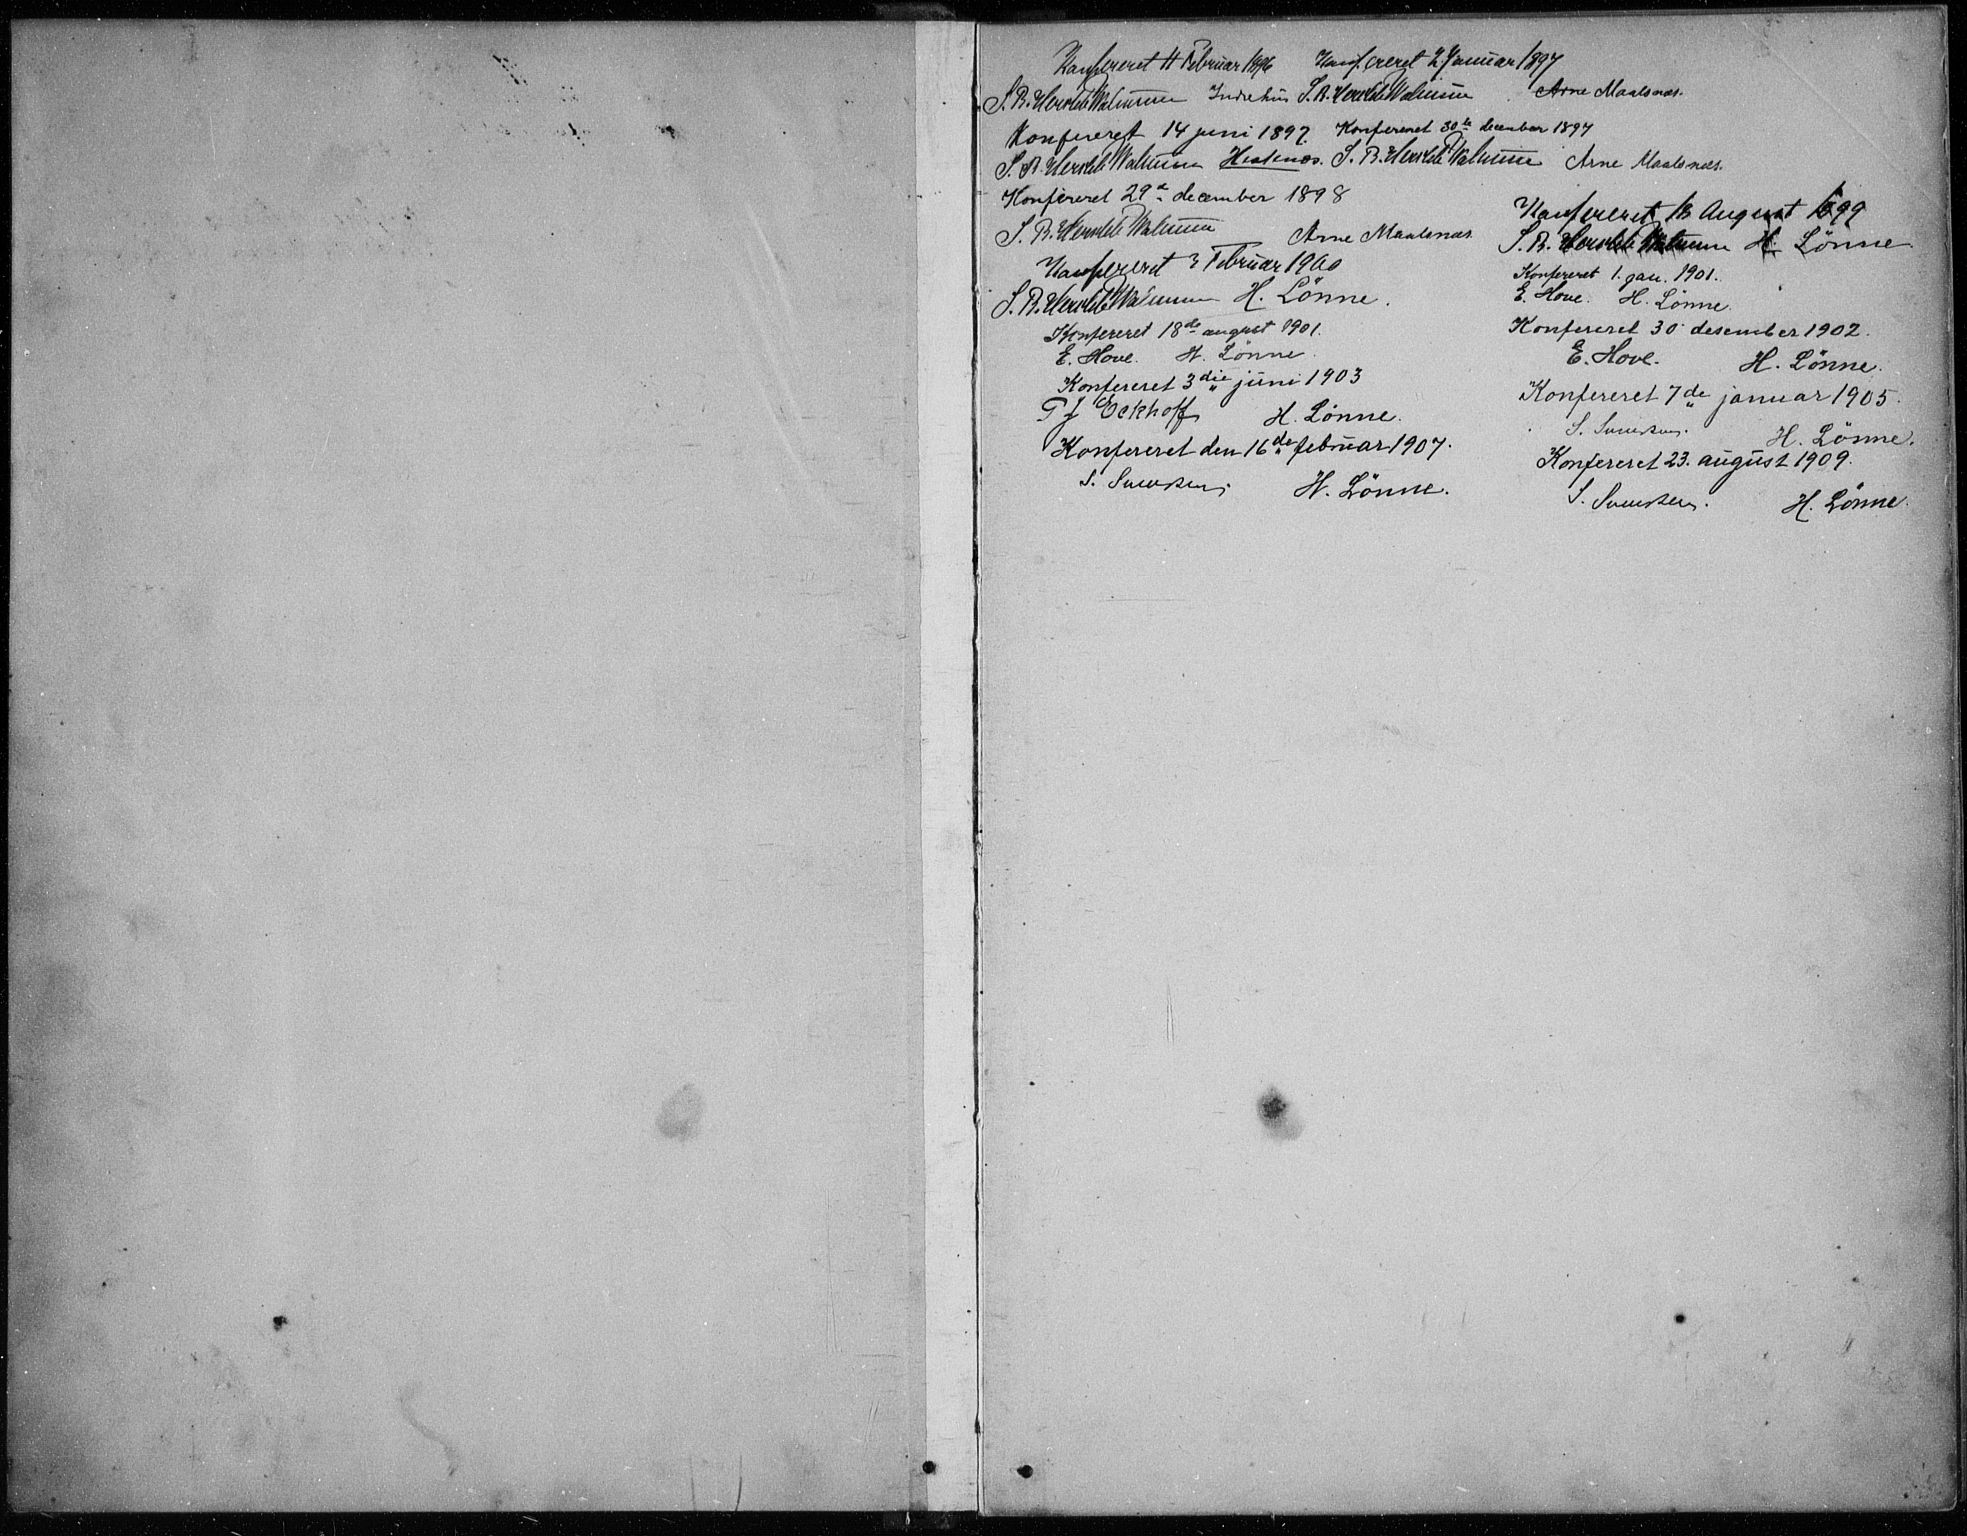 Konfereret 11 Februar 1896 Konfereret 2 Januar 1897
S. B. Hersleb Walnum Indrehus S. B. Hersleb Walnum Arne Maalsnæs.
Konfereret 14 juni 1897. Konfereret 30te december 1897
S. B. Hersleb Walnum Hestenæs. S. B. Hersleb Walnum Arne Maalsnæs.
Konfereret 29de december 1898
S. B. Hersleb Walnum Arne Maalsnæs
Konfereret 13 August 1899
S. B. Hersleb Walnum H. Lönne
Konfereret 3 Februar 1900
S. B. Hersleb Walnum H. Lönne.
Konfereret 1. jan. 1901.
E. Hove. H. Lönne.
Konfereret 18de august 1901.
E. Hove. H. Lönne.
Konfereret 30 desember 1902.
E. Hove. H. Lönne.
Konfereret 3die juni 1903
T J Eckhoff H. Lönne.
Konfereret 7de januar 1905.
S. Svendsen. H. Lönne.
Konfereret den 16de februar 1907.
S. Svendsen. H. Lönne.
Konfereret 23. august 1909.
S. Svendsen. H. Lönne.